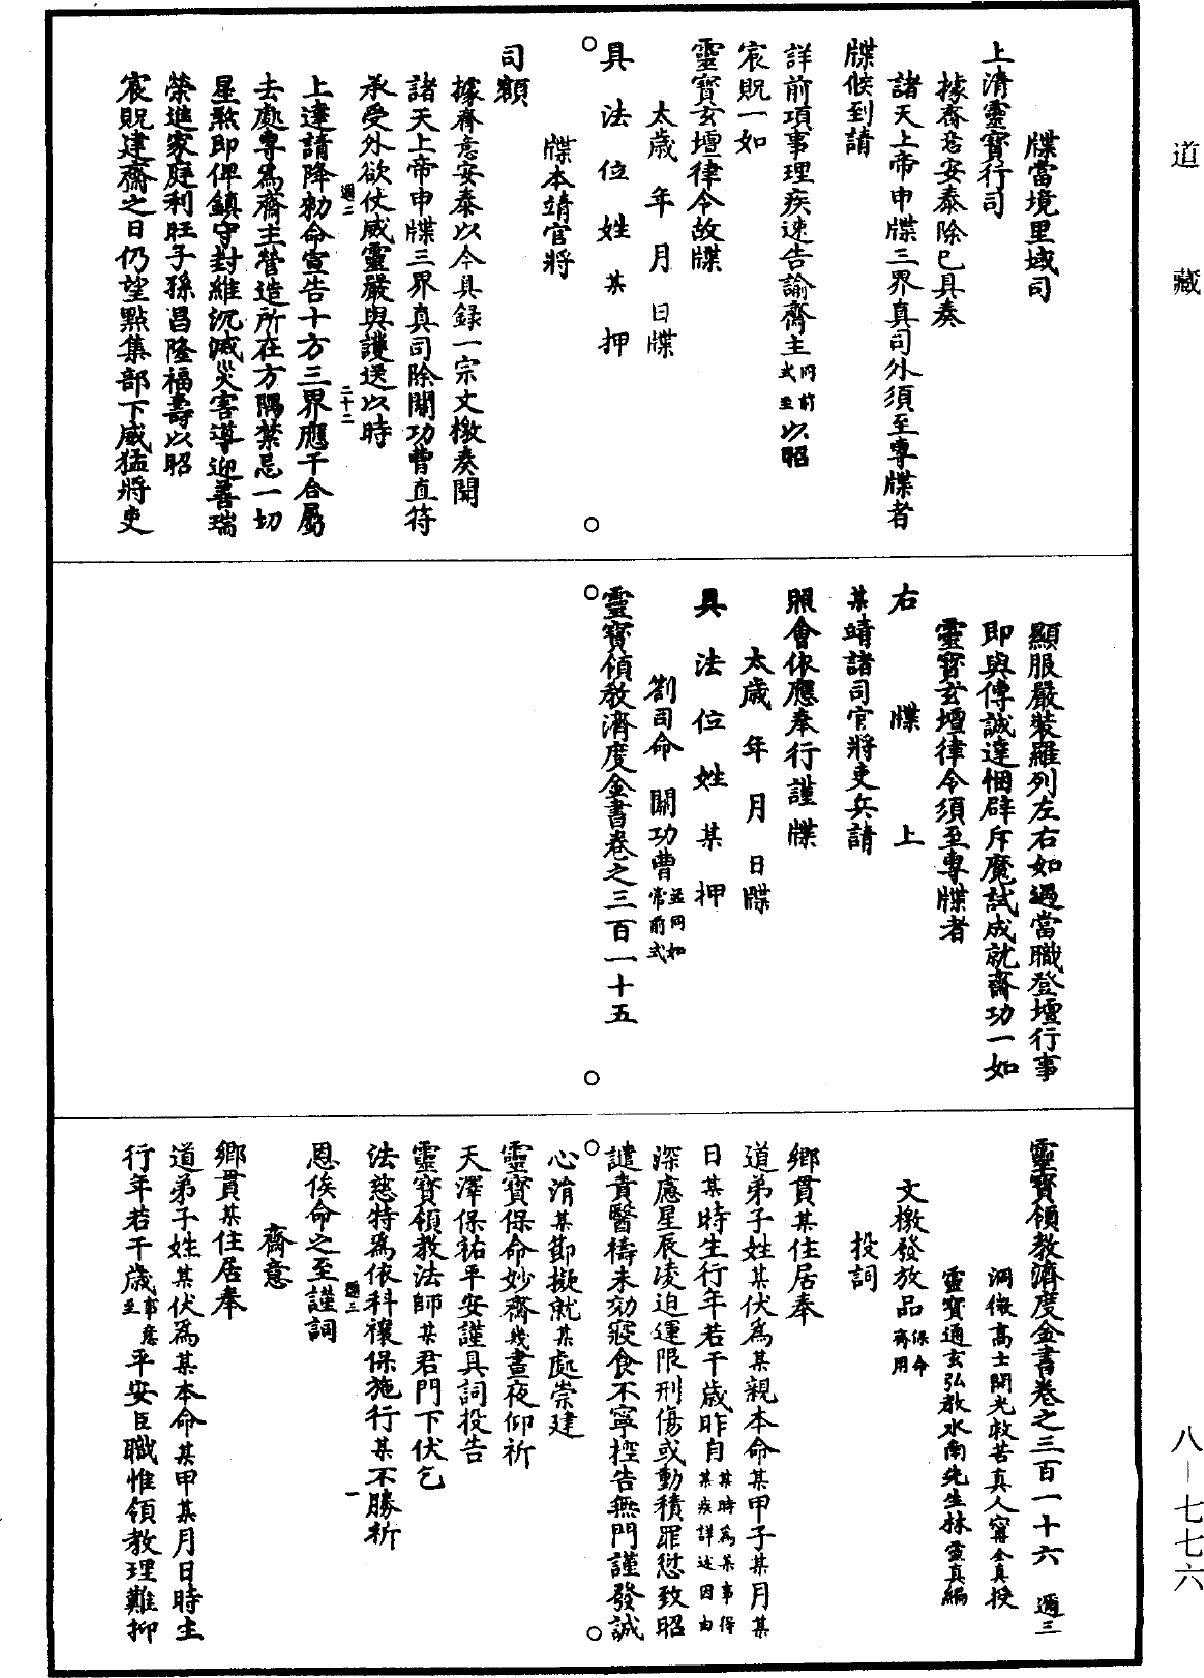 道藏
牒當境里域司
上清靈寶行司
據齋意安泰除已具奏
諸天上帝申牒三界真司外須至專牒者
牒候到請
詳前項事理疾速告諭齋主同前式至以昭
宸貺一如
靈寶玄壇律令故牒
太歲年月日牒
具法位姓某押
牒本靖官將
司額
據齋意安泰以今具録一宗文檄奏聞
諸天上帝申牒三界真司除關功曹直符
承受外欲仗威靈嚴與護送以時
週二 二十二
上達請降勑命宣告十方三界應干合屬
去處專為齋主營造所在方隅禁忌一切
星煞即俾鎮守封維沉滅災害導迎善瑞
榮進家庭利旺子孫昌隆福壽以昭
宸貺建齋之日仍望點集部下威猛將吏
顯服嚴裝羅列左右如遇當職登壇行事
即與傳誠達悃辟斥魔試成就齋功一如
靈寶玄壇律令須至專牒者
右牒上
某靖諸司官將吏兵請
照會依應奉行謹牒
太歲年月日牒
具法位姓某押
劄司命 關功曹並同如常前式
靈寶領教濟度金書卷之三百一十五
靈寶領教濟度金書卷之三百一十六 週三
洞微高士開光救苦真人甯全真授
靈寶通玄弘教水南先生林靈真編
文檄發放品保命齋用
投詞
鄉貫某住居奉
道弟子姓某伏為某親本命某甲子某月某
日某時生行年若干歲昨自某時為某事得某疾詳述因由
深慮星辰凌迫運限刑傷或動積罪愆致昭
譴責醫禱未効寢食不寧控告無門謹發誠
心涓某節擬就某處崇建
靈寶保命妙齋幾晝夜仰祈
天澤保祐平安謹具詞投告
靈寶領教法師某君門下伏乞
法慈特為依科禳保施行某不勝祈
週三 一
恩俟命之至謹詞
齋意
鄉貫某住居奉
道弟子姓某伏為某本命某甲某月日時生
行年若干歲事意至平安臣職惟領教理難抑
八—七七六